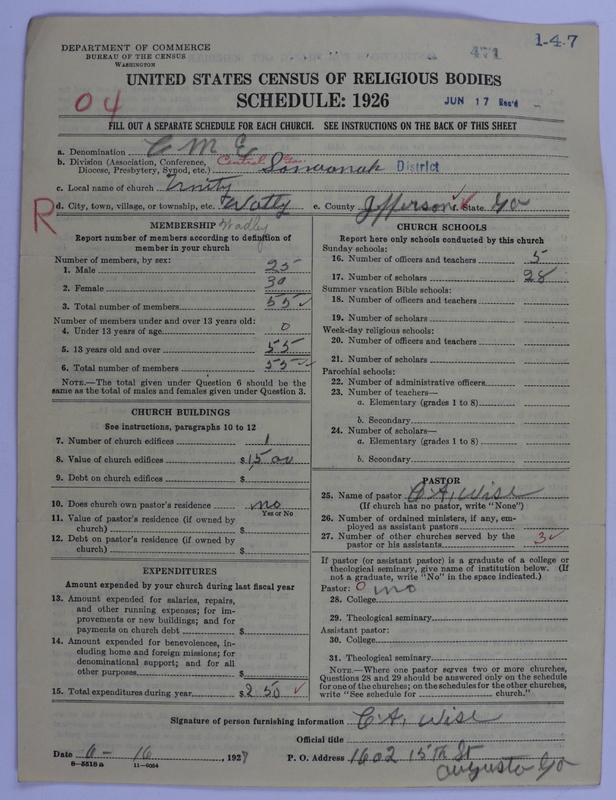 DEPARTMENT OF COMMERCE
BUREAU OF THE CENSUS
WASHINGTON
471
1-4-7
UNITED STATES CENSUS OF RELIGIOUS BODIES
SCHEDULE: 1926
04
JUN 17 Rec'd
FILL OUT A SEPARATE SCHEDULE FOR EACH CHURCH. SEE INSTRUCTIONS ON THE BACK OF THIS SHEET
a. Denomination C M E
b. Division (Association, Conference, Diocese, Presbytery, Synod, etc.) Central Ga. District
c. Local name of church Unity
d. City, town, village, or township, etc. Watly e. County Jefferson f. State Ga
R
MEMBERSHIP Wadley
Report number of members according to definition of member in your church
Number of members, by sex:
1. Male 25
2. Female 30
3. Total number of members 55 ✓
Number of members under and over 13 years old:
4. Under 13 years of age 0
5. 13 years old and over 55
6. Total number of members 55 ✓
NOTE.—The total given under Question 6 should be the same as the total of males and females given under Question 3.
CHURCH BUILDINGS
See instructions, paragraphs 10 to 12
7. Number of church edifices 1
8. Value of church edifices $ 15 00
9. Debt on church edifices $
10. Does church own pastor's residence no
Yes or No
11. Value of pastor's residence (if owned by church) $
12. Debt on pastor's residence (if owned by church) $
EXPENDITURES
Amount expended by your church during last fiscal year
13. Amount expended for salaries, repairs, and other running expenses; for improvements or new buildings; and for payments on church debt $
14. Amount expended for benevolences, including home and foreign missions; for denominational support; and for all other purposes $
15. Total expenditures during year $ 2 50 ✓
CHURCH SCHOOLS
Report here only schools conducted by this church
Sunday schools:
16. Number of officers and teachers 5
17. Number of scholars 28
Summer vacation Bible schools:
18. Number of officers and teachers
19. Number of scholars
Week-day religious schools:
20. Number of officers and teachers
21. Number of scholars
Parochial schools:
22. Number of administrative officers
23. Number of teachers—
a. Elementary (grades 1 to 8)
b. Secondary
24. Number of scholars—
a. Elementary (grades 1 to 8)
b. Secondary
PASTOR
25. Name of pastor C A, Wise
(If church has no pastor, write "None")
26. Number of ordained ministers, if any, employed as assistant pastors
27. Number of other churches served by the pastor or his assistants 3 ✓
If pastor (or assistant pastor) is a graduate of a college or theological seminary, give name of institution below. (If not a graduate, write "No" in the space indicated.)
Pastor: 0 no
28. College
29. Theological seminary
Assistant pastor:
30. College
31. Theological seminary
NOTE.—Where one pastor serves two or more churches, Questions 28 and 29 should be answered only on the schedule for one of the churches; on the schedules for the other churches, write "See schedule for church."
Signature of person furnishing information C A, Wise
Official title
Date 6-16, 1927 P. O. Address 1602 15th St
8-5518 a 11-6054 Augusta Ga